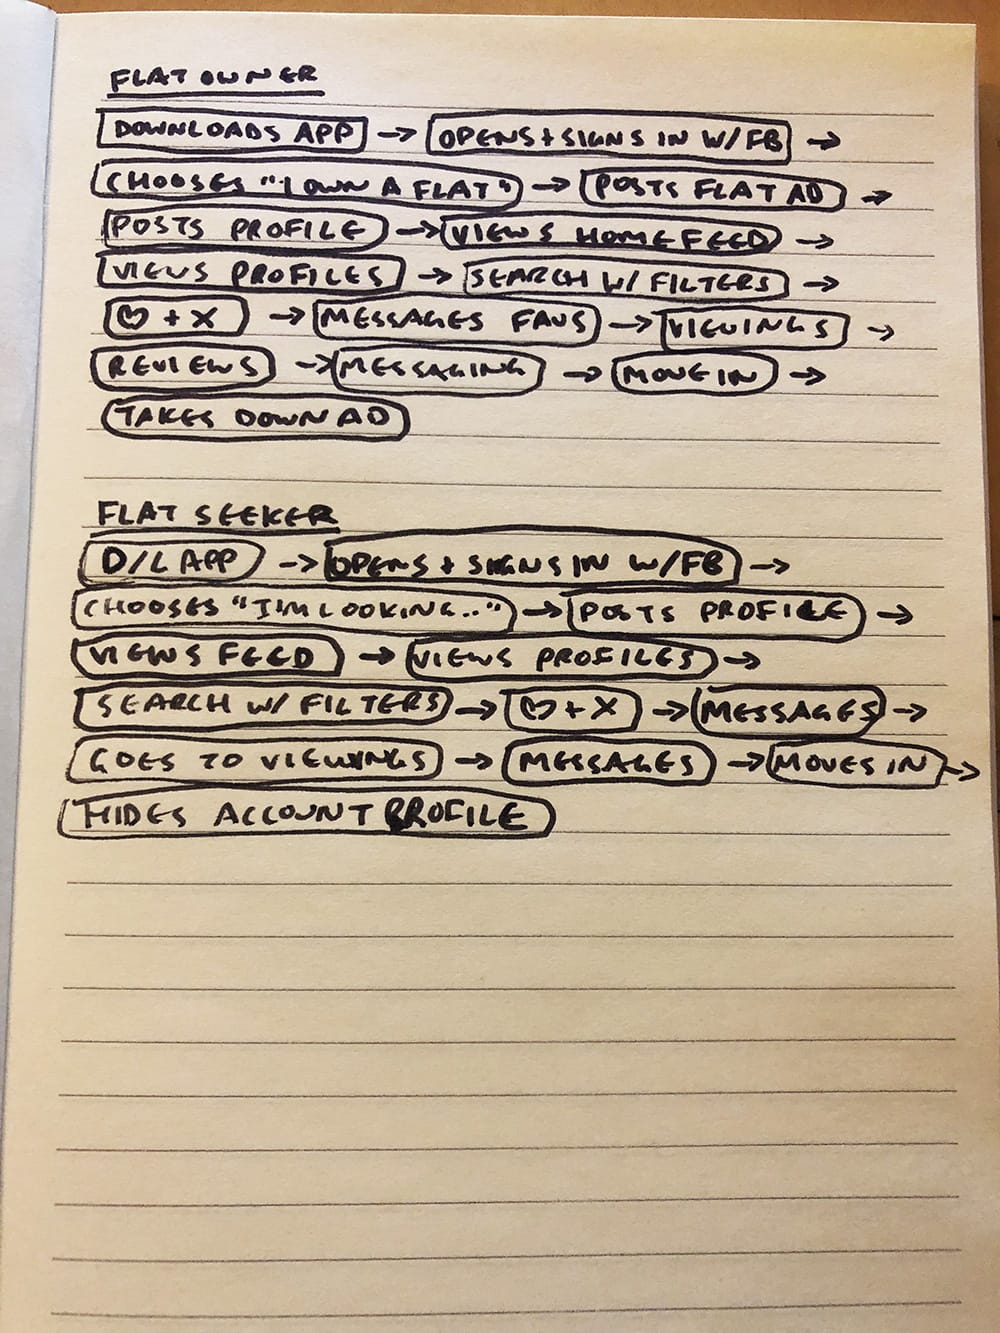 FLAT OWNER
DOWNLOADS APP → OPENS + SIGNS IN W/FB →
CHOOSES "I OWN A FLAT" → POSTS FLAT AD →
POSTS PROFILE → VIEWS HOMEFEED →
VIEWS PROFILES → SEARCH W/ FILTERS →
♡ + X → MESSAGES FAVS → VIEWINGS →
REVIEWS → MESSAGING → MOVE IN →
TAKES DOWN AD
FLAT SEEKER
D/L APP → OPENS + SIGNS IN W/FB →
CHOOSES "I'M LOOKING.." → POSTS PROFILE →
VIEWS FEED → VIEWS PROFILES →
SEARCH W/ FILTERS → ♡ + X → MESSAGES →
GOES TO VIEWINGS → MESSAGES → MOVES IN →
HIDES ACCOUNT PROFILE